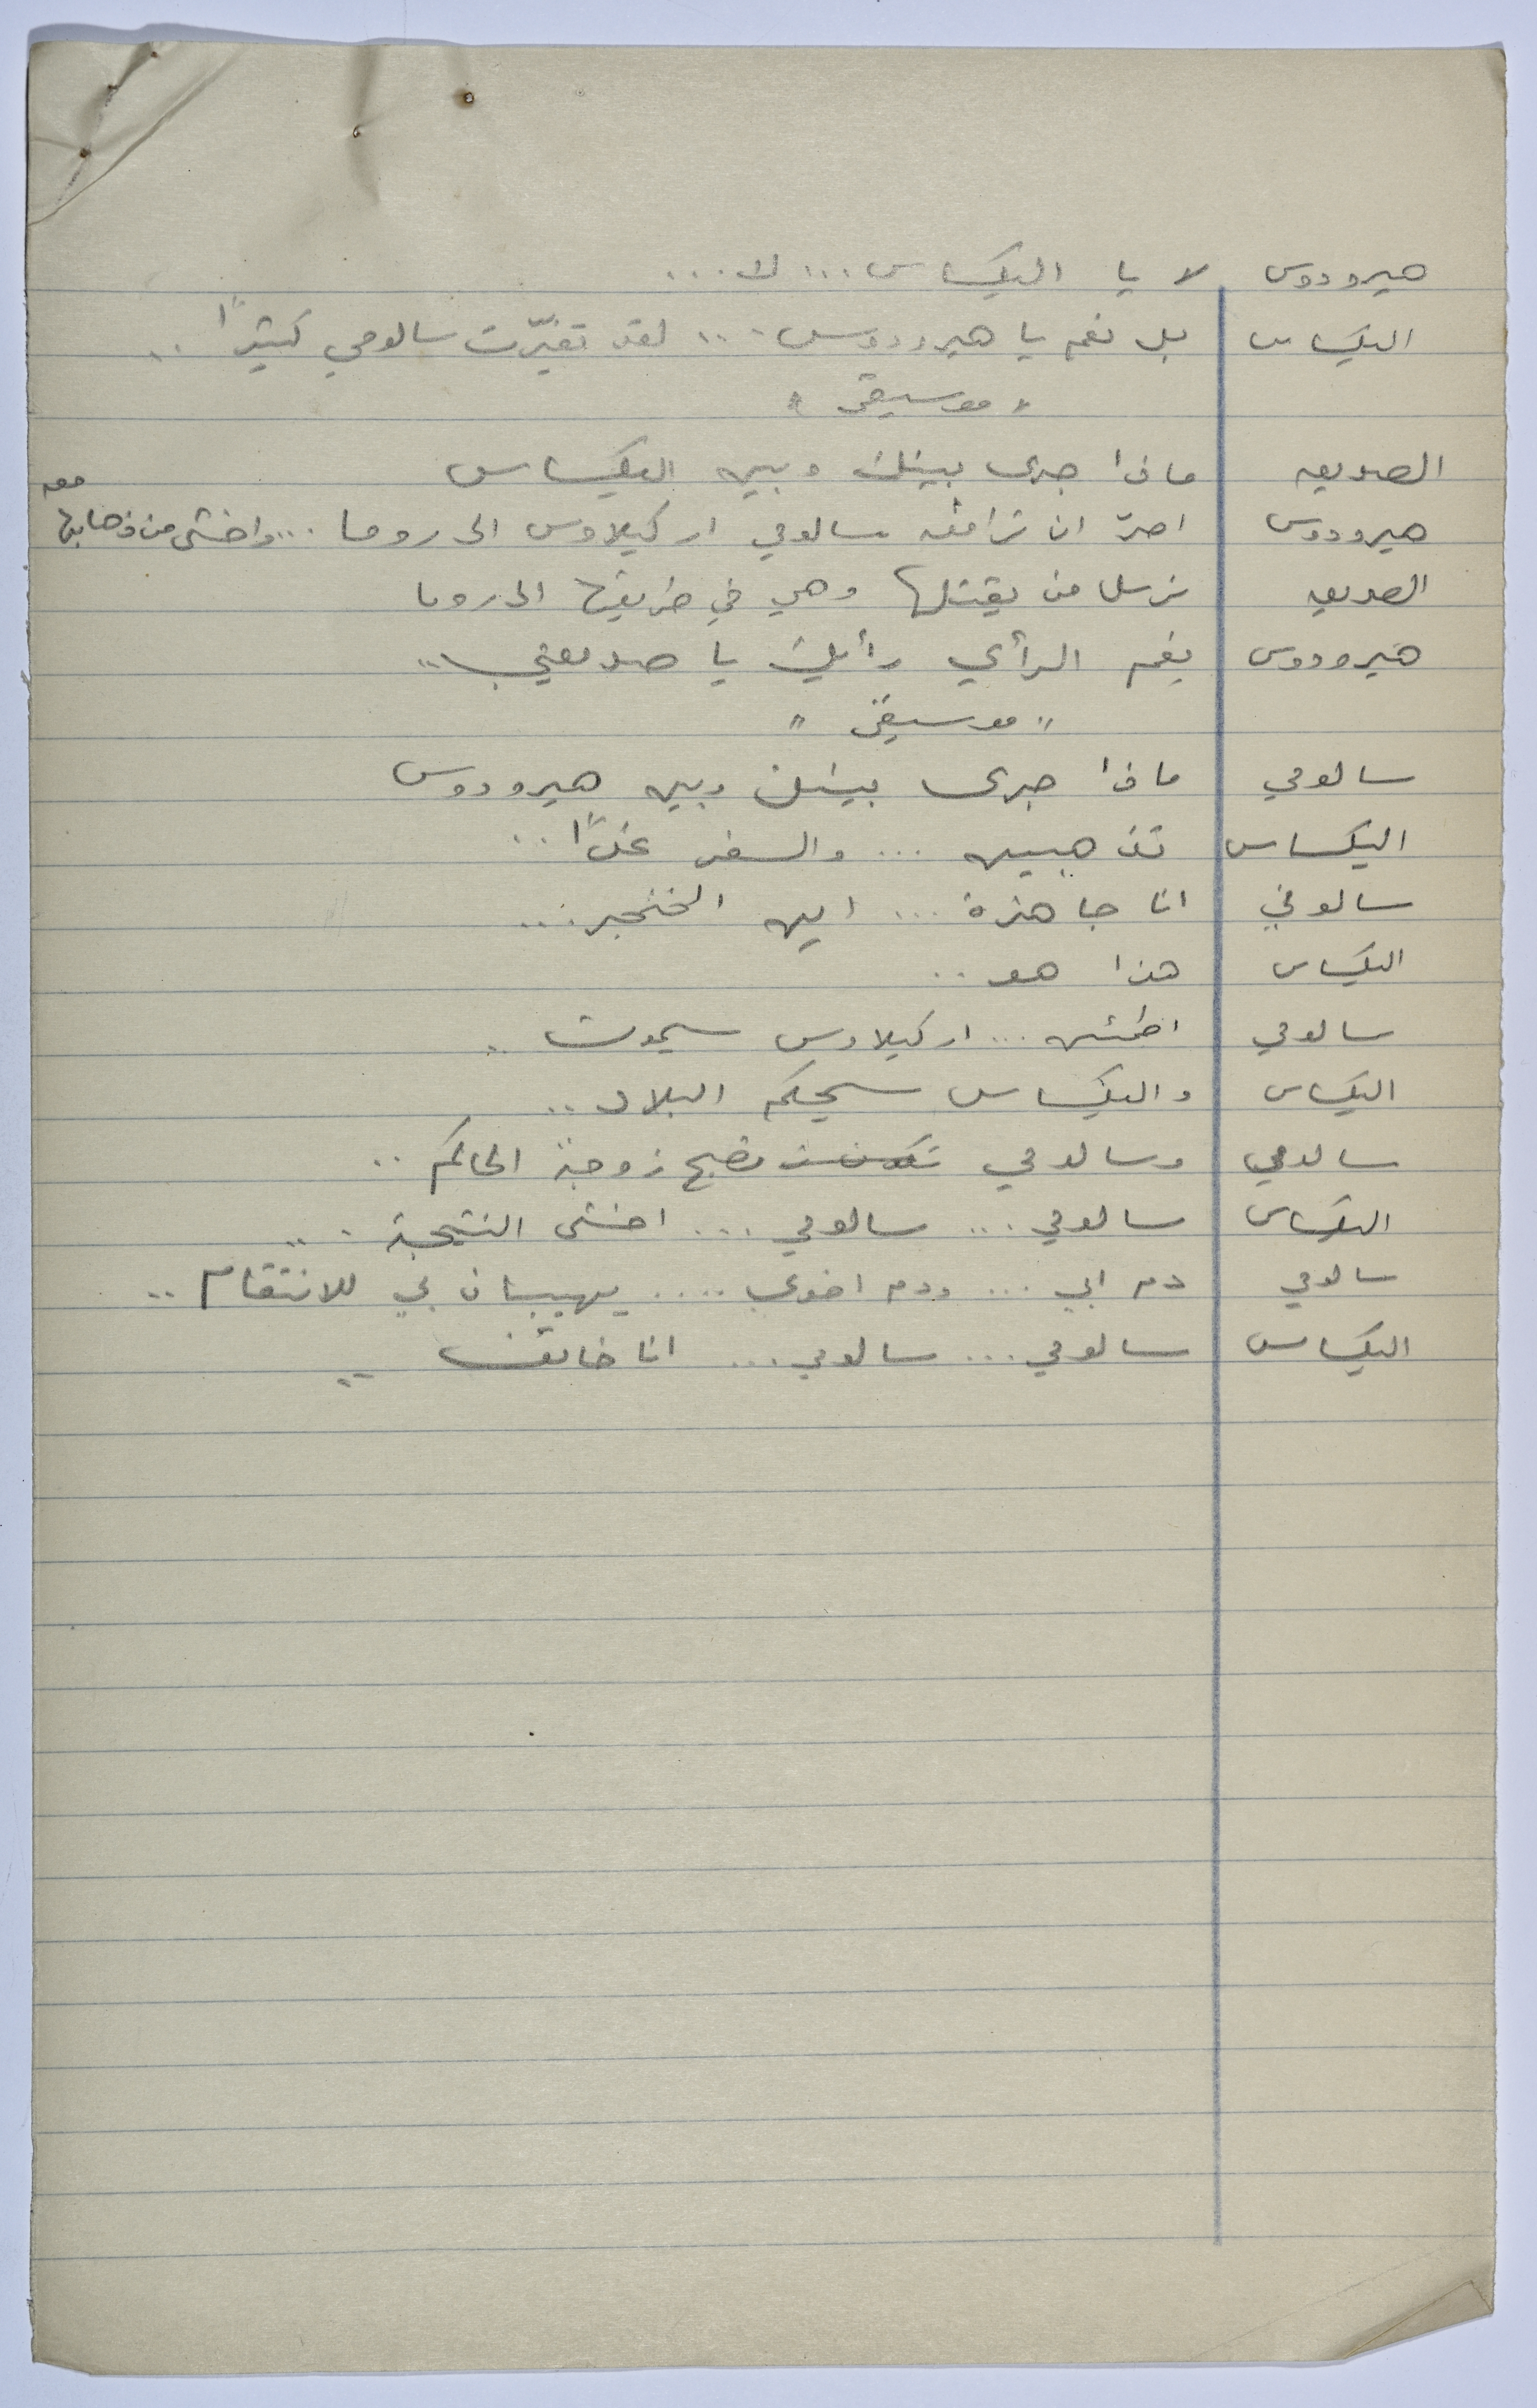 هيرودوس لا يا اليكساس ... لا ...
اليكساس بل نعم يا هيرودوس ... لقد تغيّرت سالومي كثيرًا ..
" موسيقى "
الصديق ماذا جرى بينك وبين اليكساس
هيرودوس اصرّ ان ترافق سالومي اركيلاوس الى روما ... واخشى من ذهابها معه
الصديق نرسل من يقتلها وهي في طريقها الى روما
هيرودوس نعم الرأي رأيك يا صديقي ..
" موسيقى "
سالومي ماذا جرى بينك وبين هيرودوس
اليكساس تذهبين ... والسفر غدًا ..
سالومي انا جاهزة ... اين الخنجر ...
اليكساس هذا هو ..
سالومي اطمئن ... اركيلاوس سيموت ..
اليكساس واليكساس سيحكم البلاد ..
سالومي وسالومي تصبح زوجة الحاكم ..
اليكساس سالومي ... سالومي ... اخشى النتيجة ...
سالومي دم ابي ... ودم اخوي .... يهيبان بي للانتقام ..
اليكساس سالومي ... سالومي ... انا خائف ..